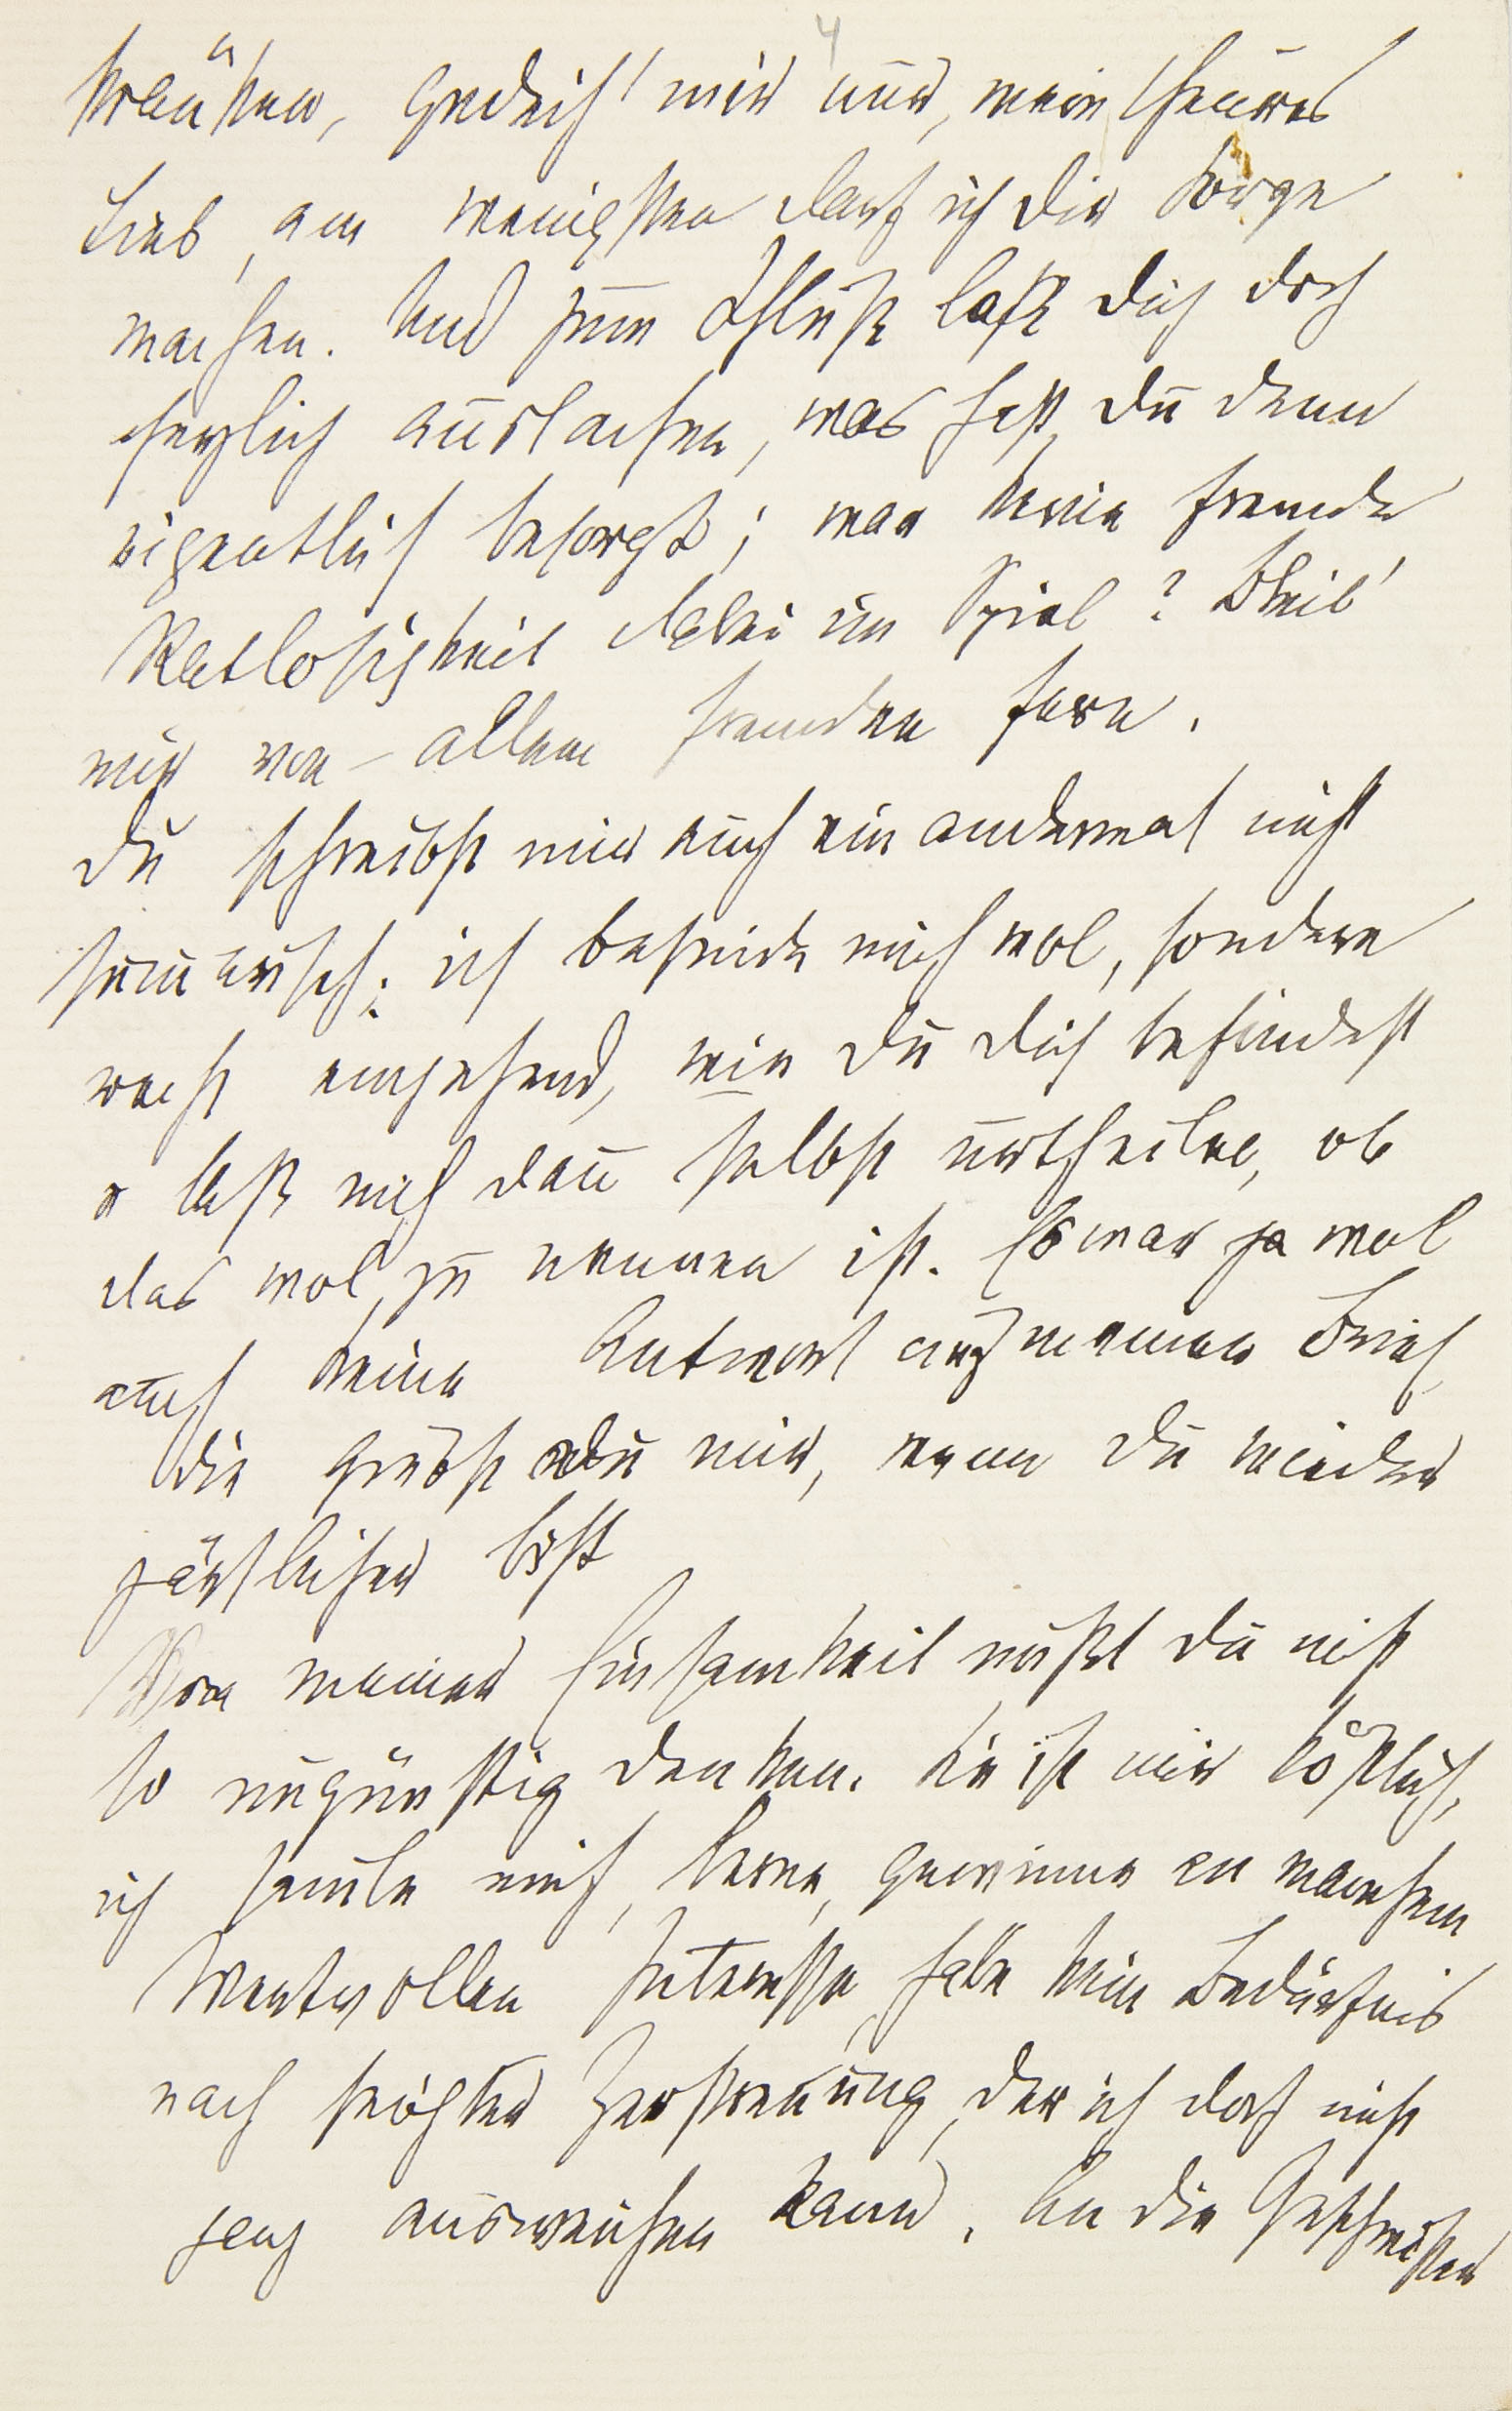 4
kränken, gedeih' mir nur, mein theures
Lieb, am wenigsten darf ich Dir Sorge
machen. Und zum Schluß laß Dich doch
herzlich auslachen, was hast Du denn
eigentlich besorgt; war keine fremde
Ratlosigkeit dabei im Spiel? Bleib'
mir von allem fremden fern.
Du schreibst mir auch ein andermal nicht
summarisch: ich befinde mich wol, sondern
recht eingehend, wie Du Dich befindest
u laß mich dann selbst urtheilen, ob
das wol zu nennen ist. Es war ja wol
auch keine Antwort auf meinen Brief,
die giebst Du mir, wenn Du wieder
zärtlicher bist
Von meiner Einsamkeit mußt Du nicht
so ungünstig denken. Sie ist mir köstlich,
ich samle mich, lerne, gewinne an manchem
Wertvollen Interesse, habe kein Bedürfnis
nach seichter Zerstreuung, der ich doch nicht
ganz ausweichen kann. An die Geschwister